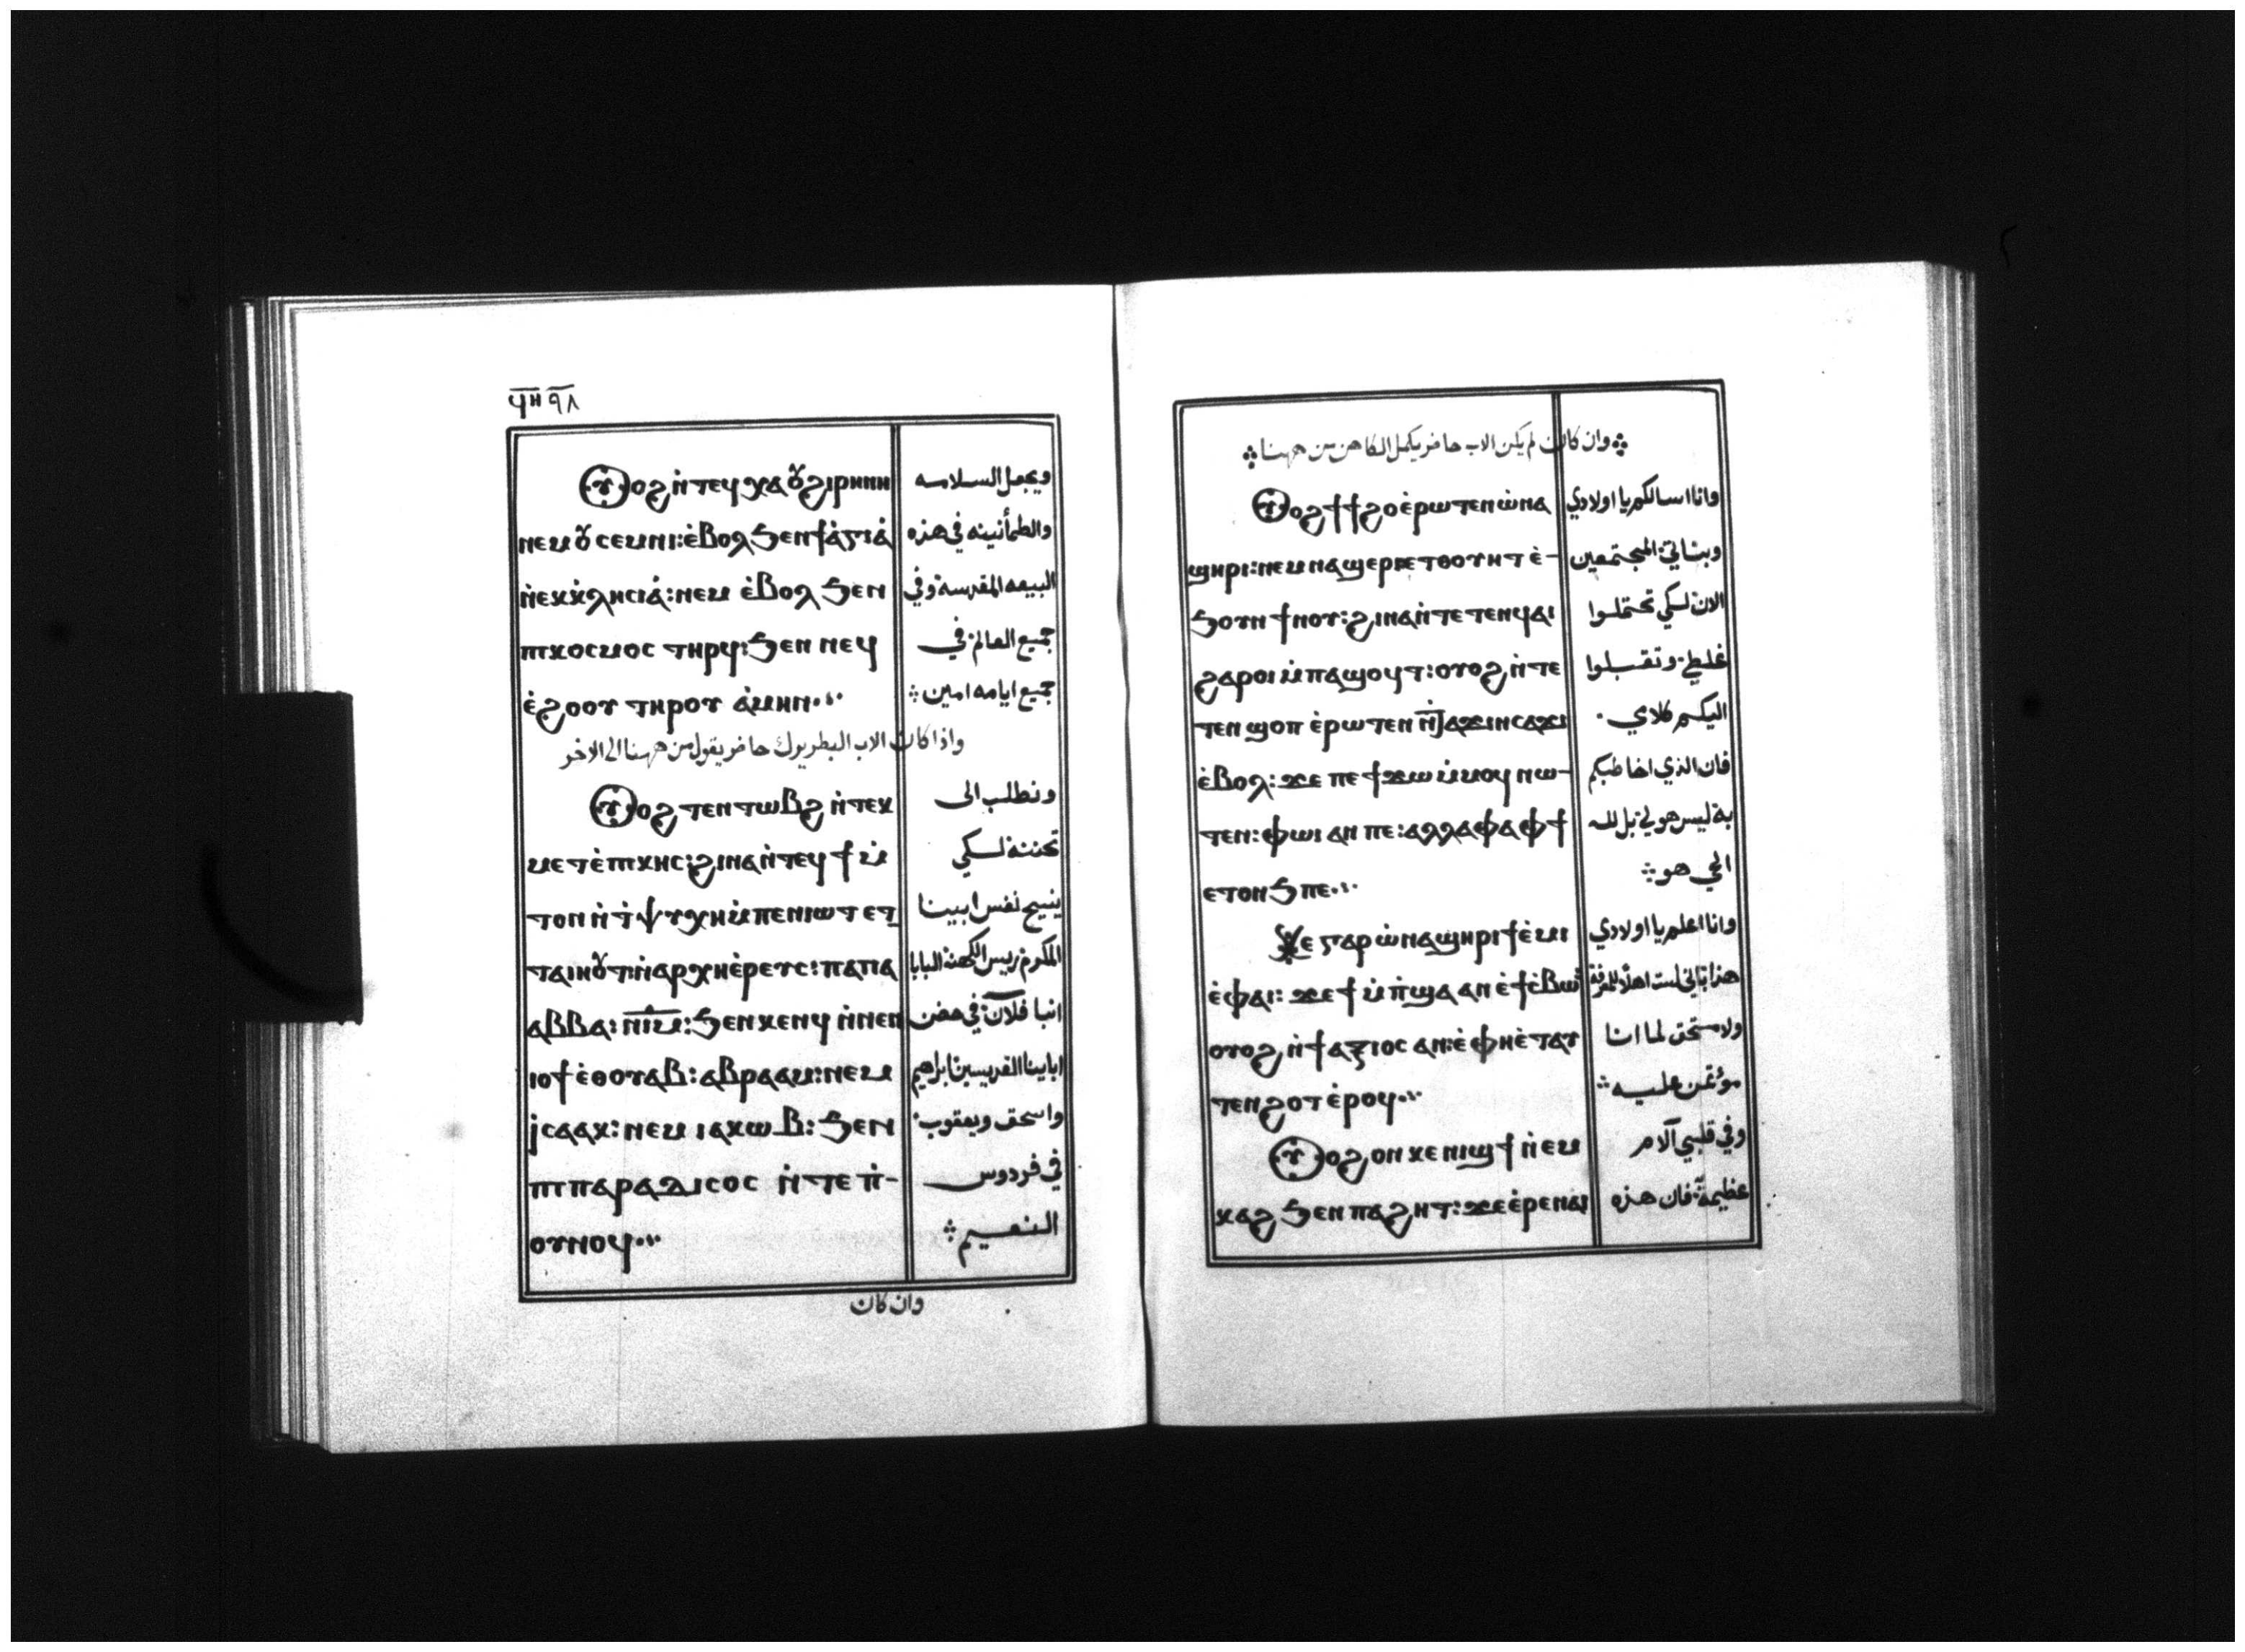 ϥⲏ ٩٨
ⲟⲩⲟϩ ⲛ̀ⲧⲉϥⲭⲁ ⲟⲩϩⲓⲣⲏⲛⲏ ويجعل السلامه
ⲛⲉⲙ ⲟⲩⲥⲉⲙⲛⲓ: ⲉ̀ⲃⲟⲗ ϧⲉⲛ ϯⲁ̀ⲅⲓⲁ̀ والطمأنينه في هذه
ⲛ̀ⲉⲕⲕ̀ⲗⲏⲥⲓⲁ̀: ⲛⲉⲙ ⲉ̀ⲃⲟⲗ ϧⲉⲛ البيعه المقدسة وفي
ⲡⲓⲕⲟⲥⲙⲟⲥ ⲧⲏⲣϥ: ϧⲉⲛ ⲛⲉϥ جميع العالم: في
ⲉ̀ϩⲟⲟⲩ ⲧⲏⲣⲟⲩ ⲁ̀ⲙⲏⲛ جميع ايامه امين
واذا كان الاب البطريرك حاضر يقول من ههنا الى الاخر
ⲟⲩⲟϩ ⲧⲉⲛⲧⲱⲃϩ ⲛ̀ⲧⲉⲕ ونطلب الى
ⲙⲉⲧⲉ̀ⲡⲓⲕⲏⲥ: ϩⲓⲛⲁ ⲛ̀ⲧⲉϥϯ ⲙ̀ تحننه لسكي
ⲧⲟⲛ ⲛ̀ϯⲯⲩⲭⲏ ⲙ̀ⲡⲉⲛⲓⲱⲧ ⲉⲧ ينيح نفس ابينا
ⲧⲁⲓⲏⲟⲩⲧ: ⲛ̀ⲁⲣⲭⲏⲉ̀ⲣⲉⲩⲥ: ⲡⲁⲡⲁ المكرم: ريس الكهنة البابا
ⲁⲃⲃⲁ: ⲛⲓⲙ: ϧⲉⲛ ⲕⲉⲛϥ ⲛ̀ⲛⲉⲛ انبا فلان: في حضن
ⲓⲟϯ ⲉ̀ⲑⲟⲩⲁⲃ: ⲁⲃⲣⲁⲁⲙ: ⲛⲉⲙ ابايينا القديسين ابراهيم
ⲓⲥⲁⲁⲕ: ⲛⲉⲙ ⲓⲁⲕⲱⲃ: ϧⲉⲛ واسحق ويعقوب:
ⲡⲓⲡⲁⲣⲁⲇⲓⲥⲟⲥ ⲛ̀ⲧⲉ ⲡ̀- في فردوس
ⲟⲩⲛⲟϥ النعيم
وان كان
وان كان لم يكن الاب حاضر يكمل الكاهن من ههنا
ⲟⲩⲟϩ ϯϯϩⲟ ⲉ̀ⲣⲱⲧⲉⲛ ⲱ̀ ⲛⲁ وانا اسالكم يا اولادي
ϣⲏⲣⲓ: ⲛⲉⲙ ⲛⲁϣⲉⲣⲓ ⲉⲧⲑⲟⲩⲏⲧ ⲉ̀- وبناتي: المجتمعين
ϧⲟⲩⲛ ϯⲛⲟⲩ: ϩⲓⲛⲁ ⲛ̀ⲧⲉⲧⲉⲛϥⲁⲓ الان: لسكي تحتملوا
ϩⲁⲣⲟⲓ ⲙ̀ⲡⲁϣⲟϥⲧ: ⲟⲩⲟϩ ⲛ̀ⲧⲉ غلطي: وتقبلوا
ⲧⲉⲛϣⲟⲡ ⲉ̀ⲣⲱⲧⲉⲛ ⲛ̀ϫⲁϫⲓⲛⲥⲁϫⲓ اليكم كلاي.
ⲉ̀ⲃⲟⲗ: ϫⲉ ⲡⲉϯϫⲱ ⲙ̀ⲙⲟϥ ⲛⲱ- فان الذي اخاطبكم
ⲧⲉⲛ: ⲫⲱⲓ ⲁⲛ ⲡⲉ: ⲁⲗⲗⲁ ⲫⲁ ⲫϯ به ليس هو لي: بل لله
ⲉⲧⲟⲛϧ ⲡⲉ الحي هو
ϫⲉ ⲅⲁⲣ ⲱ̀ ⲛⲁϣⲏⲣⲓ ϯⲉ̀ⲙⲓ وانا اعلم يا اولادي
ⲉ̀ⲫⲁⲓ: ϫⲉ ϯⲙ̀ⲡ̀ϣⲁ ⲁⲛ ⲉ̀ϯⲥ̀ⲃⲱ هذا: باني لست اهلا للمعرفة
ⲟⲩⲟϩ ⲛ̀ϯⲁⲝⲓⲟⲥ ⲁⲛ: ⲉ̀ⲫⲏⲉ̀ⲧⲁⲩ ولا مستحق لما انا
ⲧⲉⲛϩⲟⲧ ⲉ̀ⲣⲟϥ مؤتمن عليه
ⲟⲩⲟϩ ⲟⲛ ⲕⲉⲛⲓϣϯ ⲛ̀ⲉⲙ وفي قلبي آلام
ⲕⲁϩ ϧⲉⲛ ⲡⲁϩⲏⲧ: ϫⲉ ⲉ̀ⲣⲉ ⲛⲁⲓ عظيمة: فان هذه